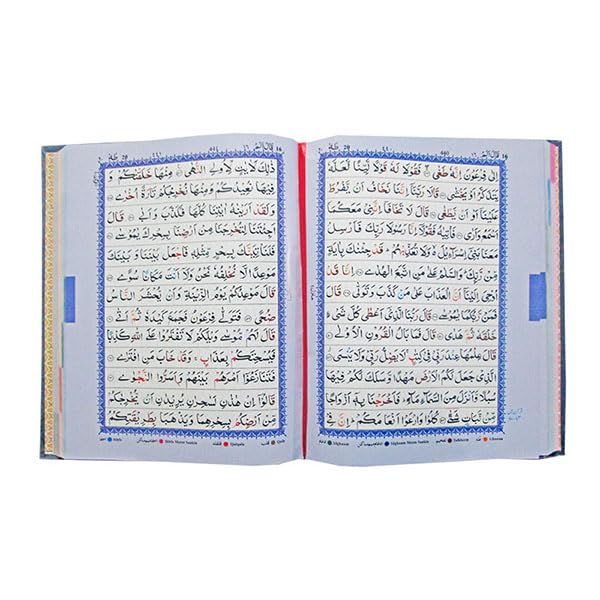 16 قال الم 440 طٰهٰ 20
اِلٰى فِرْعَوْنَ اِنَّهٗ طَغٰى ۝ فَقُوْلَا لَهٗ قَوْلًا لَّيِّنًا لَّعَلَّهٗ
يَتَذَكَّرُ اَوْ يَخْشٰى ۝ قَالَا رَبَّنَآ اِنَّنَا نَخَافُ اَنْ يَّفْرُطَ
عَلَيْنَآ اَوْ اَنْ يَّطْغٰى ۝ قَالَ لَا تَخَافَآ اِنَّنِيْ مَعَكُمَآ
اَسْمَعُ وَاَرٰى ۝ فَاْتِيٰهُ فَقُوْلَآ اِنَّا رَسُوْلَا رَبِّكَ فَاَرْسِلْ
مَعَنَا بَنِيْٓ اِسْرَآءِيْلَ وَلَا تُعَذِّبْهُمْ قَدْ جِئْنٰكَ بِاٰيَةٍ
مِّنْ رَّبِّكَ وَالسَّلٰمُ عَلٰى مَنِ اتَّبَعَ الْهُدٰى ۝ اِنَّا قَدْ
اُوْحِيَ اِلَيْنَآ اَنَّ الْعَذَابَ عَلٰى مَنْ كَذَّبَ وَتَوَلّٰى ۝
قَالَ فَمَنْ رَّبُّكُمَا يٰمُوْسٰى ۝ قَالَ رَبُّنَا الَّذِيْٓ اَعْطٰى كُلَّ شَيْءٍ
خَلْقَهٗ ثُمَّ هَدٰى ۝ قَالَ فَمَا بَالُ الْقُرُوْنِ الْاُوْلٰى ۝
قَالَ عِلْمُهَا عِنْدَ رَبِّيْ فِيْ كِتٰبٍ لَا يَضِلُّ رَبِّيْ وَلَا يَنْسَى ۝
الَّذِيْ جَعَلَ لَكُمُ الْاَرْضَ مَهْدًا وَّسَلَكَ لَكُمْ فِيْهَا
سُبُلًا وَّاَنْزَلَ مِنَ السَّمَآءِ مَآءً فَاَخْرَجْنَا بِهٖٓ اَزْوَاجًا
مِّنْ نَّبَاتٍ شَتّٰى ۝ كُلُوْا وَارْعَوْا اَنْعَامَكُمْ اِنَّ فِيْ
Idghaam Idghaam Meem Saakin Ikhfa Ghunna
16 قال الم 441 طٰهٰ 20
ذٰلِكَ لَاٰيٰتٍ لِّاُولِي النُّهٰى ۝ مِنْهَا خَلَقْنٰكُمْ وَ
فِيْهَا نُعِيْدُكُمْ وَمِنْهَا نُخْرِجُكُمْ تَارَةً اُخْرٰى
۝ وَلَقَدْ اَرَيْنٰهُ اٰيٰتِنَا كُلَّهَا فَكَذَّبَ وَاَبٰى ۝ قَالَ
اَجِئْتَنَا لِتُخْرِجَنَا مِنْ اَرْضِنَا بِسِحْرِكَ يٰمُوْسٰى ۝
فَلَنَاْتِيَنَّكَ بِسِحْرٍ مِّثْلِهٖ فَاجْعَلْ بَيْنَنَا وَبَيْنَكَ
مَوْعِدًا لَّا نُخْلِفُهٗ نَحْنُ وَلَآ اَنْتَ مَكَانًا سُوًى ۝
قَالَ مَوْعِدُكُمْ يَوْمُ الزِّيْنَةِ وَاَنْ يُّحْشَرَ النَّاسُ
ضُحًى ۝ فَتَوَلّٰى فِرْعَوْنُ فَجَمَعَ كَيْدَهٗ ثُمَّ اَتٰى ۝
قَالَ لَهُمْ مُّوْسٰى وَيْلَكُمْ لَا تَفْتَرُوْا عَلَى اللّٰهِ كَذِبًا
فَيُسْحِتَكُمْ بِعَذَابٍ وَقَدْ خَابَ مَنِ افْتَرٰى ۝
فَتَنَازَعُوْٓا اَمْرَهُمْ بَيْنَهُمْ وَاَسَرُّوا النَّجْوٰى ۝
قَالُوْٓا اِنْ هٰذٰنِ لَسٰحِرٰنِ يُرِيْدٰنِ اَنْ يُّخْرِجٰكُمْ
مِّنْ اَرْضِكُمْ بِسِحْرِهِمَا وَيَذْهَبَا بِطَرِيْقَتِكُمُ
Ikhfa Meem Saakin Qalqala Qalb